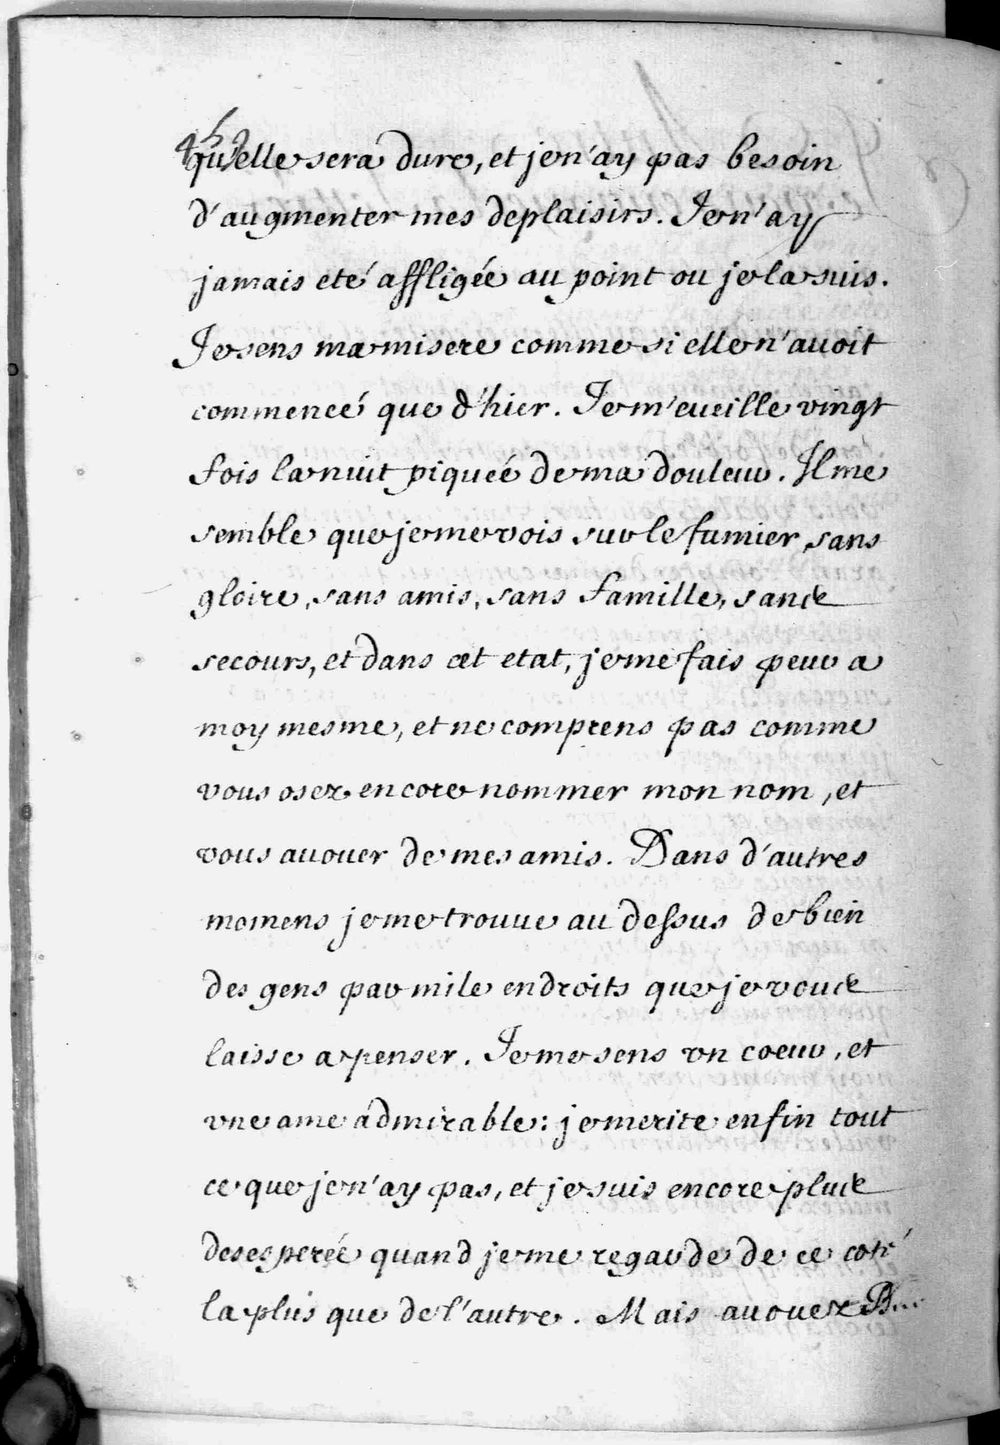 452
qu'elle sera dure, et je n'ay pas besoin
d'augmenter mes deplaisirs. Je n'ay
jamais eté affligée au point ou je la suis.
Je sens ma misere comme si elle n'auoit
commencé que d'hier. Je m'eueille vingt
fois la nuit piqueé de ma douleur. Il me
semble que je me vois sur le fumier, sans
gloire, sans amis, sans famille, sans
secours, et dans cet etat, je me fais peur a
moy mesme, et ne comprens pas comme
vous osez encore nommer mon nom, et
vous auouer de mes amis. Dans d'autres
momens je me trouue au dessus de bien
des gens par mile endroits que je vous
laisse a penser. Je me sens vn coeur, et
vne ame admirable: je merite enfin tout
ce que je n'ay pas, et je suis encore plus
desesperée quand je me regarde de ce coté
la plus que de l'autre. Mais auouez B...